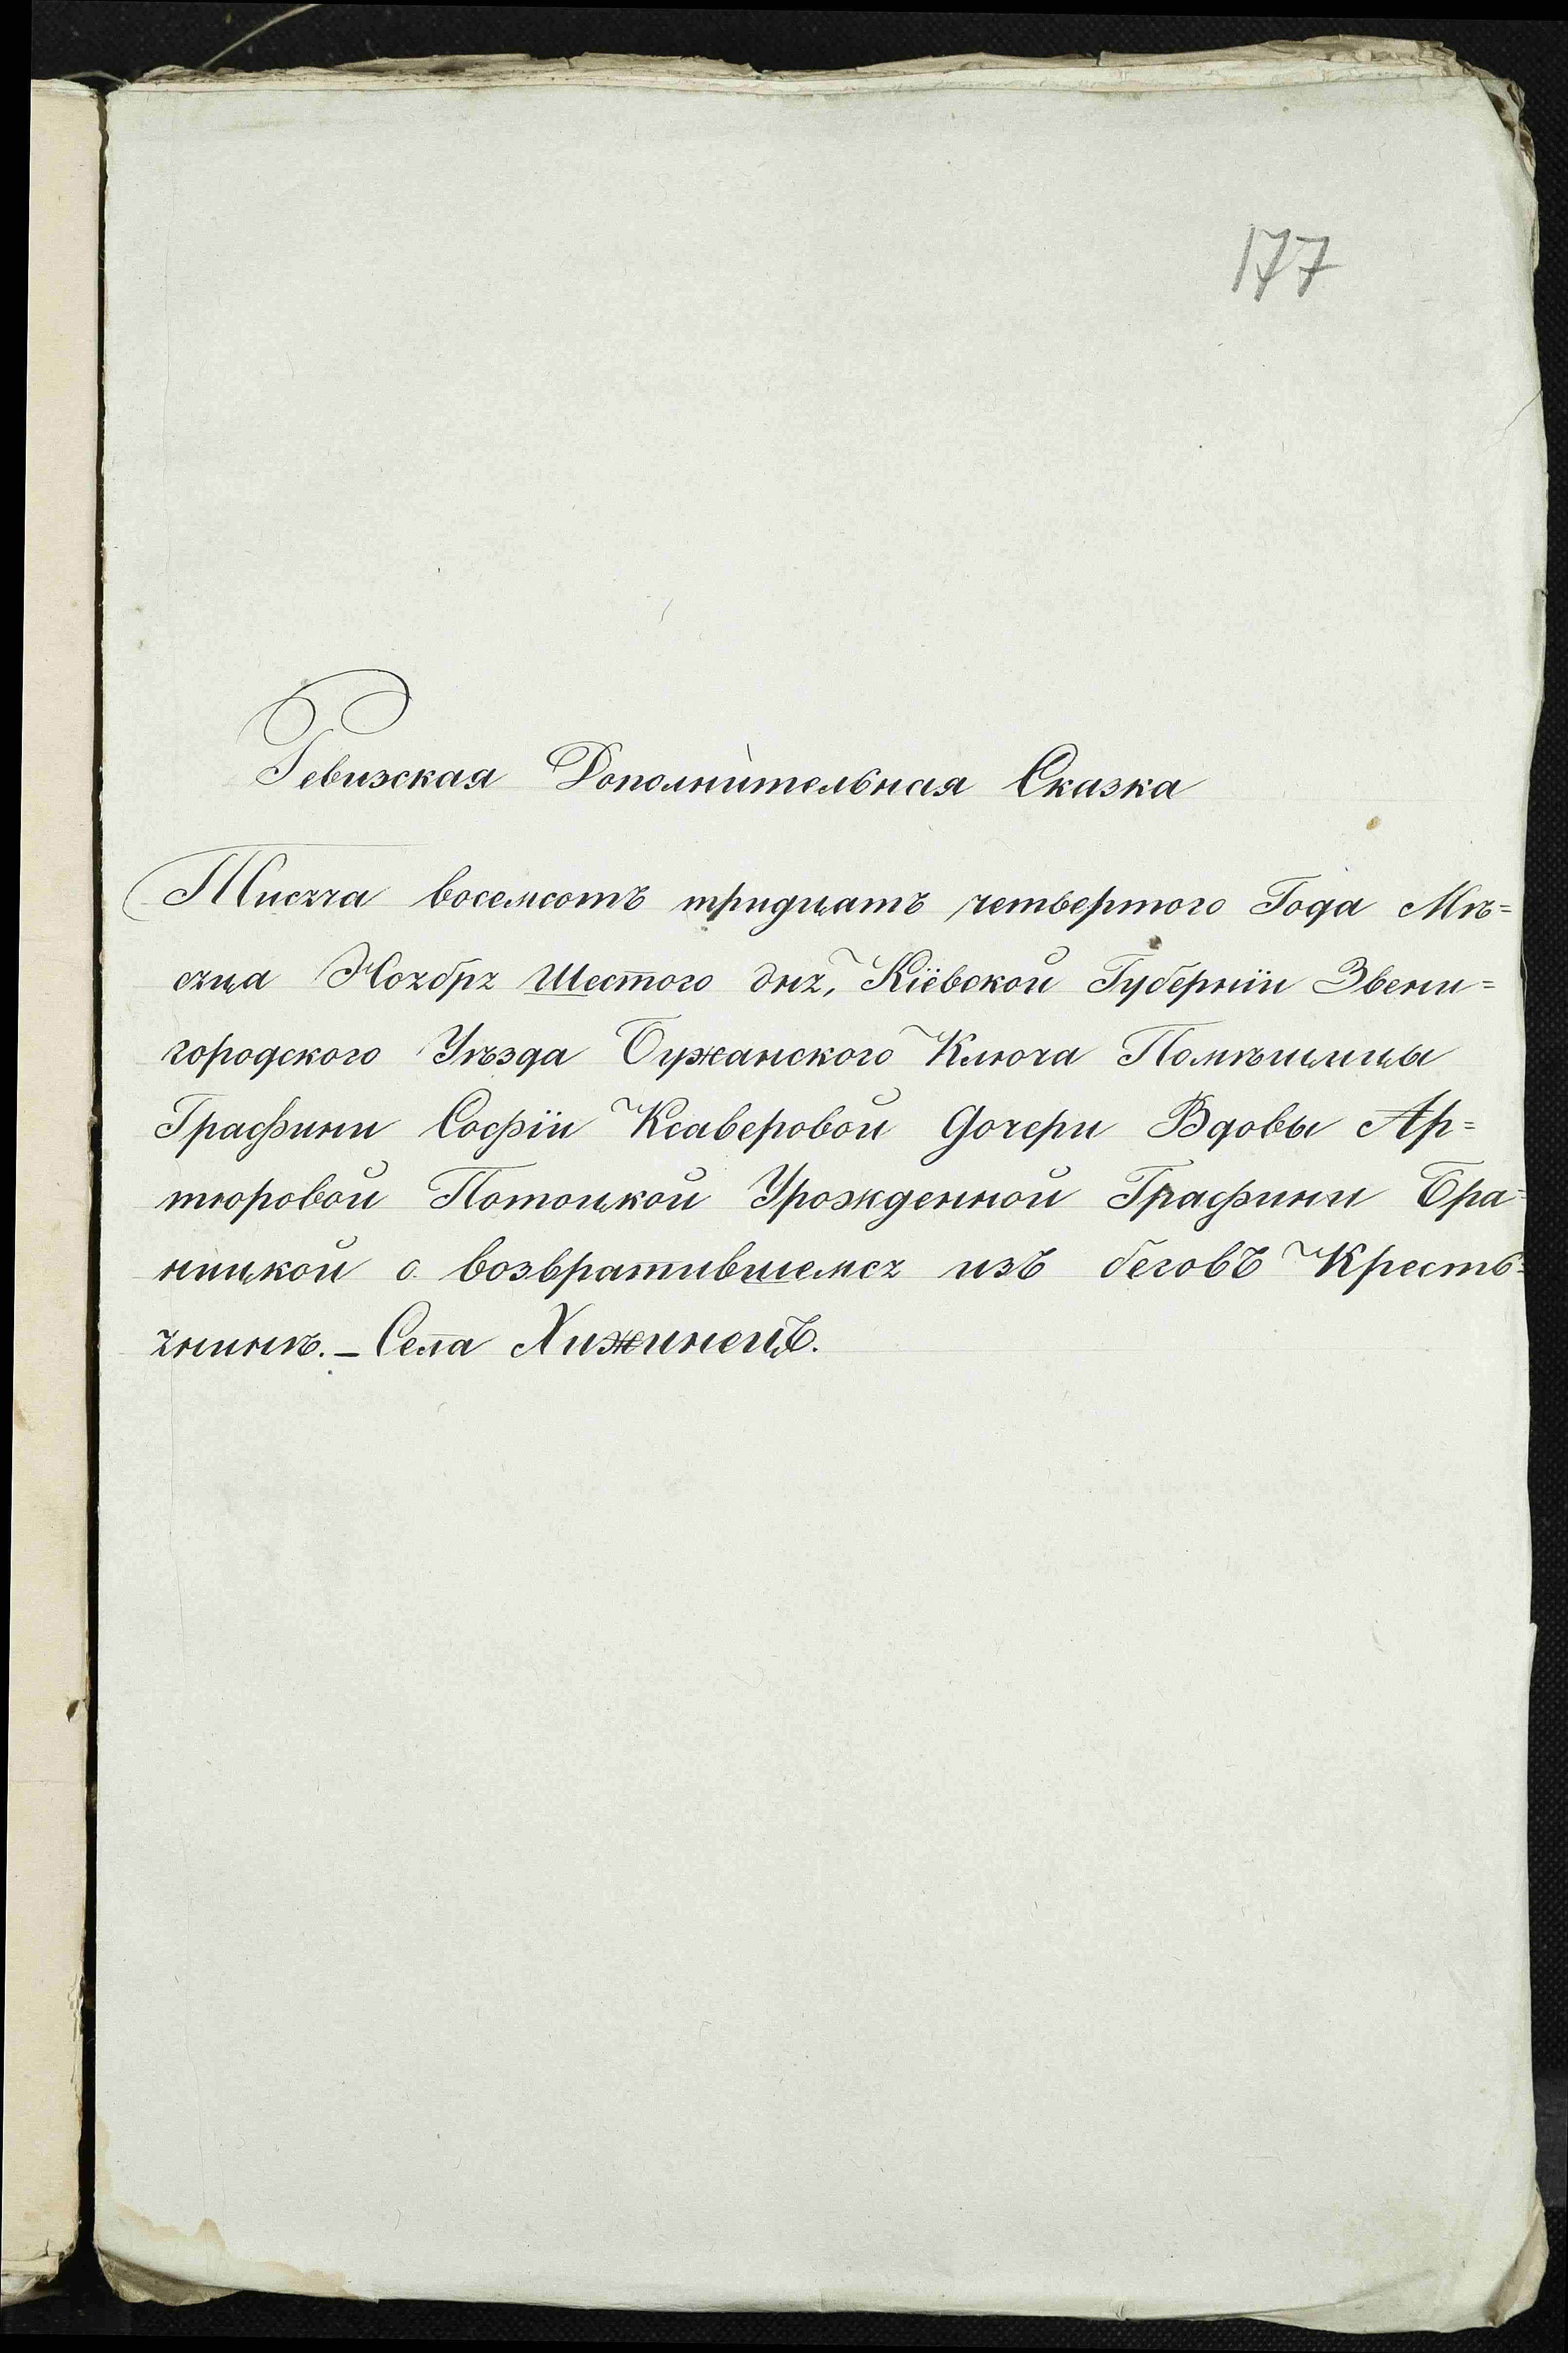 177
Ревизская Дополнительная Сказка
Тисяча восемсотъ тридцатъ четвертого Года Мѣ=
сяца Ноября Шестого дня, Кіевской Губерніи Звени=
городского Уѣзда Бужанского Ключа Помѣщицы
Графини Софіи Ксаверовой Дочери Вдовы Ар=
тюровой Потоцкой Урожденной Графини Бра=
ницкой о возвратившемся изъ беговъ Кресть=
янинѣ. – Села Хижинецъ.